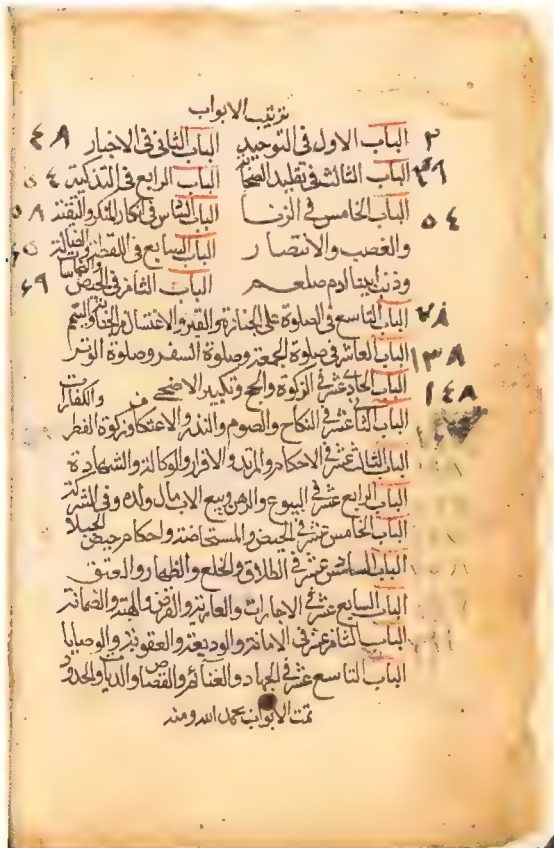 ترتيب الابواب
٢ الباب الاول فى التوحيد الباب الثانى فى الاخبار ٤٨
٤٩ الباب الثالث فى تقليد الصحابة الباب الرابع فى التذكية ٥٤
٥٤ الباب الخامس فى الزنا الباب السادس فى انكار المنكر والتقية ٥٨
والغصب والانتصار الباب السابع فى اللقطة والضالة ٦٥
وذنب ابينا ادم صلعم الباب الثامن فى الحيض والنفاس ٦٩
٧٨ الباب التاسع فى الصلوة على الجنازة والقبر والاغتسال من الجنابة والتيمم
١٣٨ الباب العاشر فى صلوة الجمعة وصلوة السفر وصلوة الوتر
١٤٨ الباب الحادى عشر فى الزكوة والحج وتكبير الاضحى والكفارات
الباب الثانى عشر فى النكاح والصوم والنذر والاعتكاف وزكوة الفطر
الباب الثالث عشر فى الاحكام والمرتد والاقرار والوكالة والشهادة
الباب الرابع عشر فى البيوع والرهن وبيع الاب مال ولده وفى الشركة
الباب الخامس عشر فى الحيض والمستحاضة واحكام حيض الحبلا
الباب السادس عشر فى الطلاق والخلع والظهار والعتق
الباب السابع عشر فى الاجارات والعارية والقرض والهبة والضمانة
الباب الثامن عشر فى الامانة والوديعة والعقوبة والوصايا
الباب التاسع عشر فى الجهاد والغنائم والقصاص والديات والحدود
تمت الابواب بحمد الله ومنه